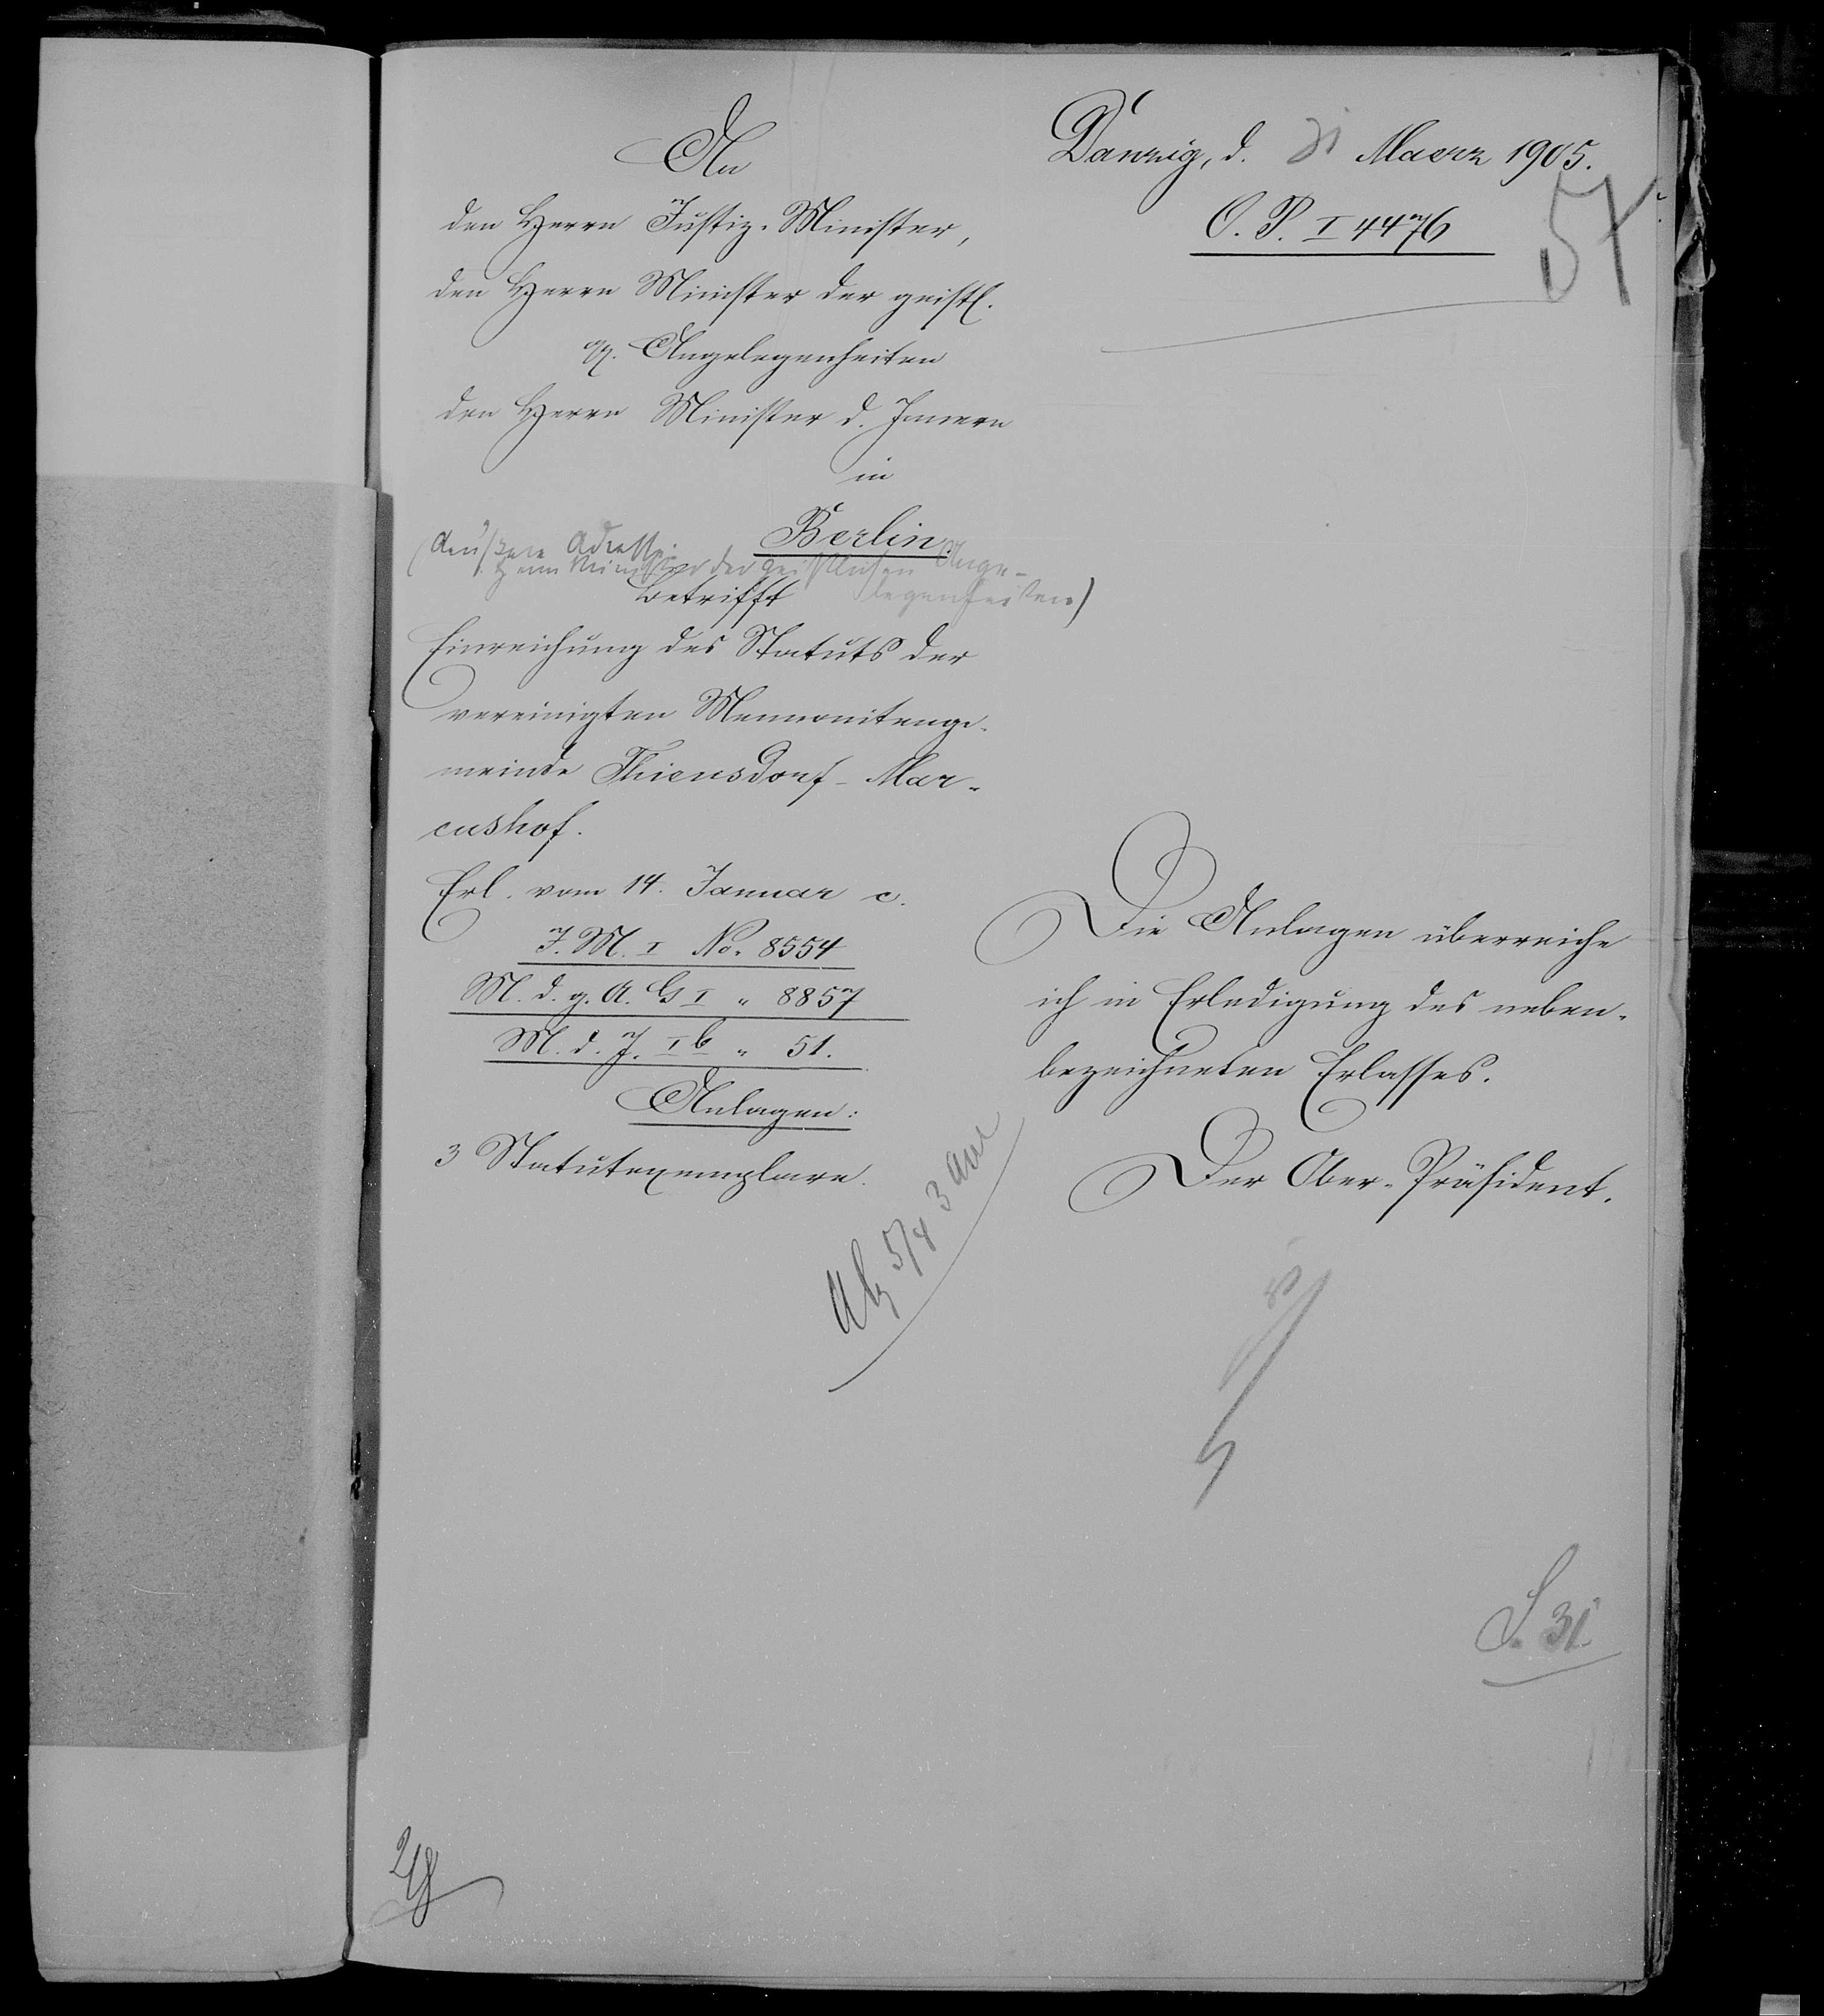 An
den Herrn Justiz-Minister,
den Herrn Minister der geistl.
pp. Angelegenheiten
den Herrn Minister d. Innern
in
Berlin.
(Äußere Adresse:
Herrn Minister der geistlichen Ange-
legenheiten)
betrifft
Einreichung des Statuts der
vereinigten Mennonitenge-
meinde Thiensdorf-Mar-
cushof.
Erl. vom 14. Januar c.
J. M. I No. 8554
M. d. g. A. G I " 8857
M. d. J. I b " 51.
Anlagen:
3 Statutexemplare.
Danzig, d. 31 Maerz 1905.
O. P. I 4476
57
Die Anlagen überreiche
ich in Erledigung des neben-
bezeichneten Erlasses.
Der Ober-Präsident.
Ab 5/4 3 Anl
S. 31